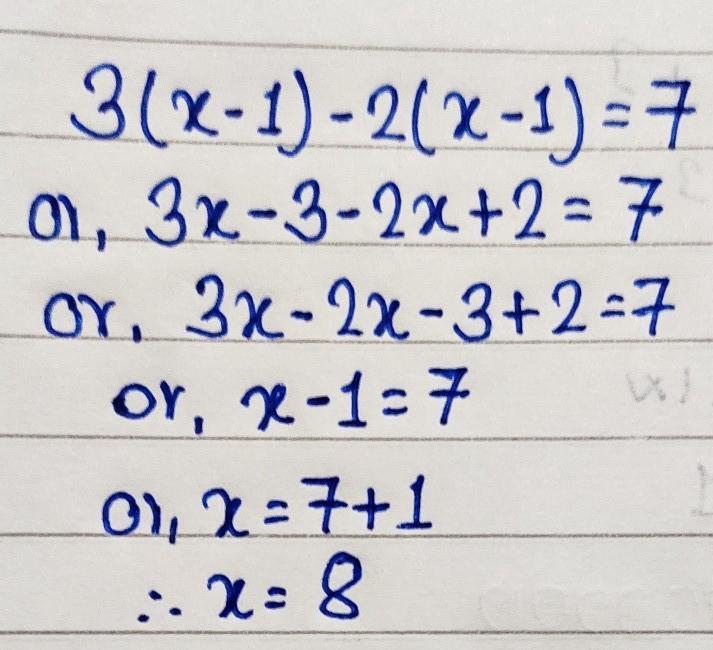 3(x-1)-2(x-1)=7
or, 3x-3-2x+2=7
or, 3x-2x-3+2=7
or, x-1=7
or, x=7+1
∴ x=8